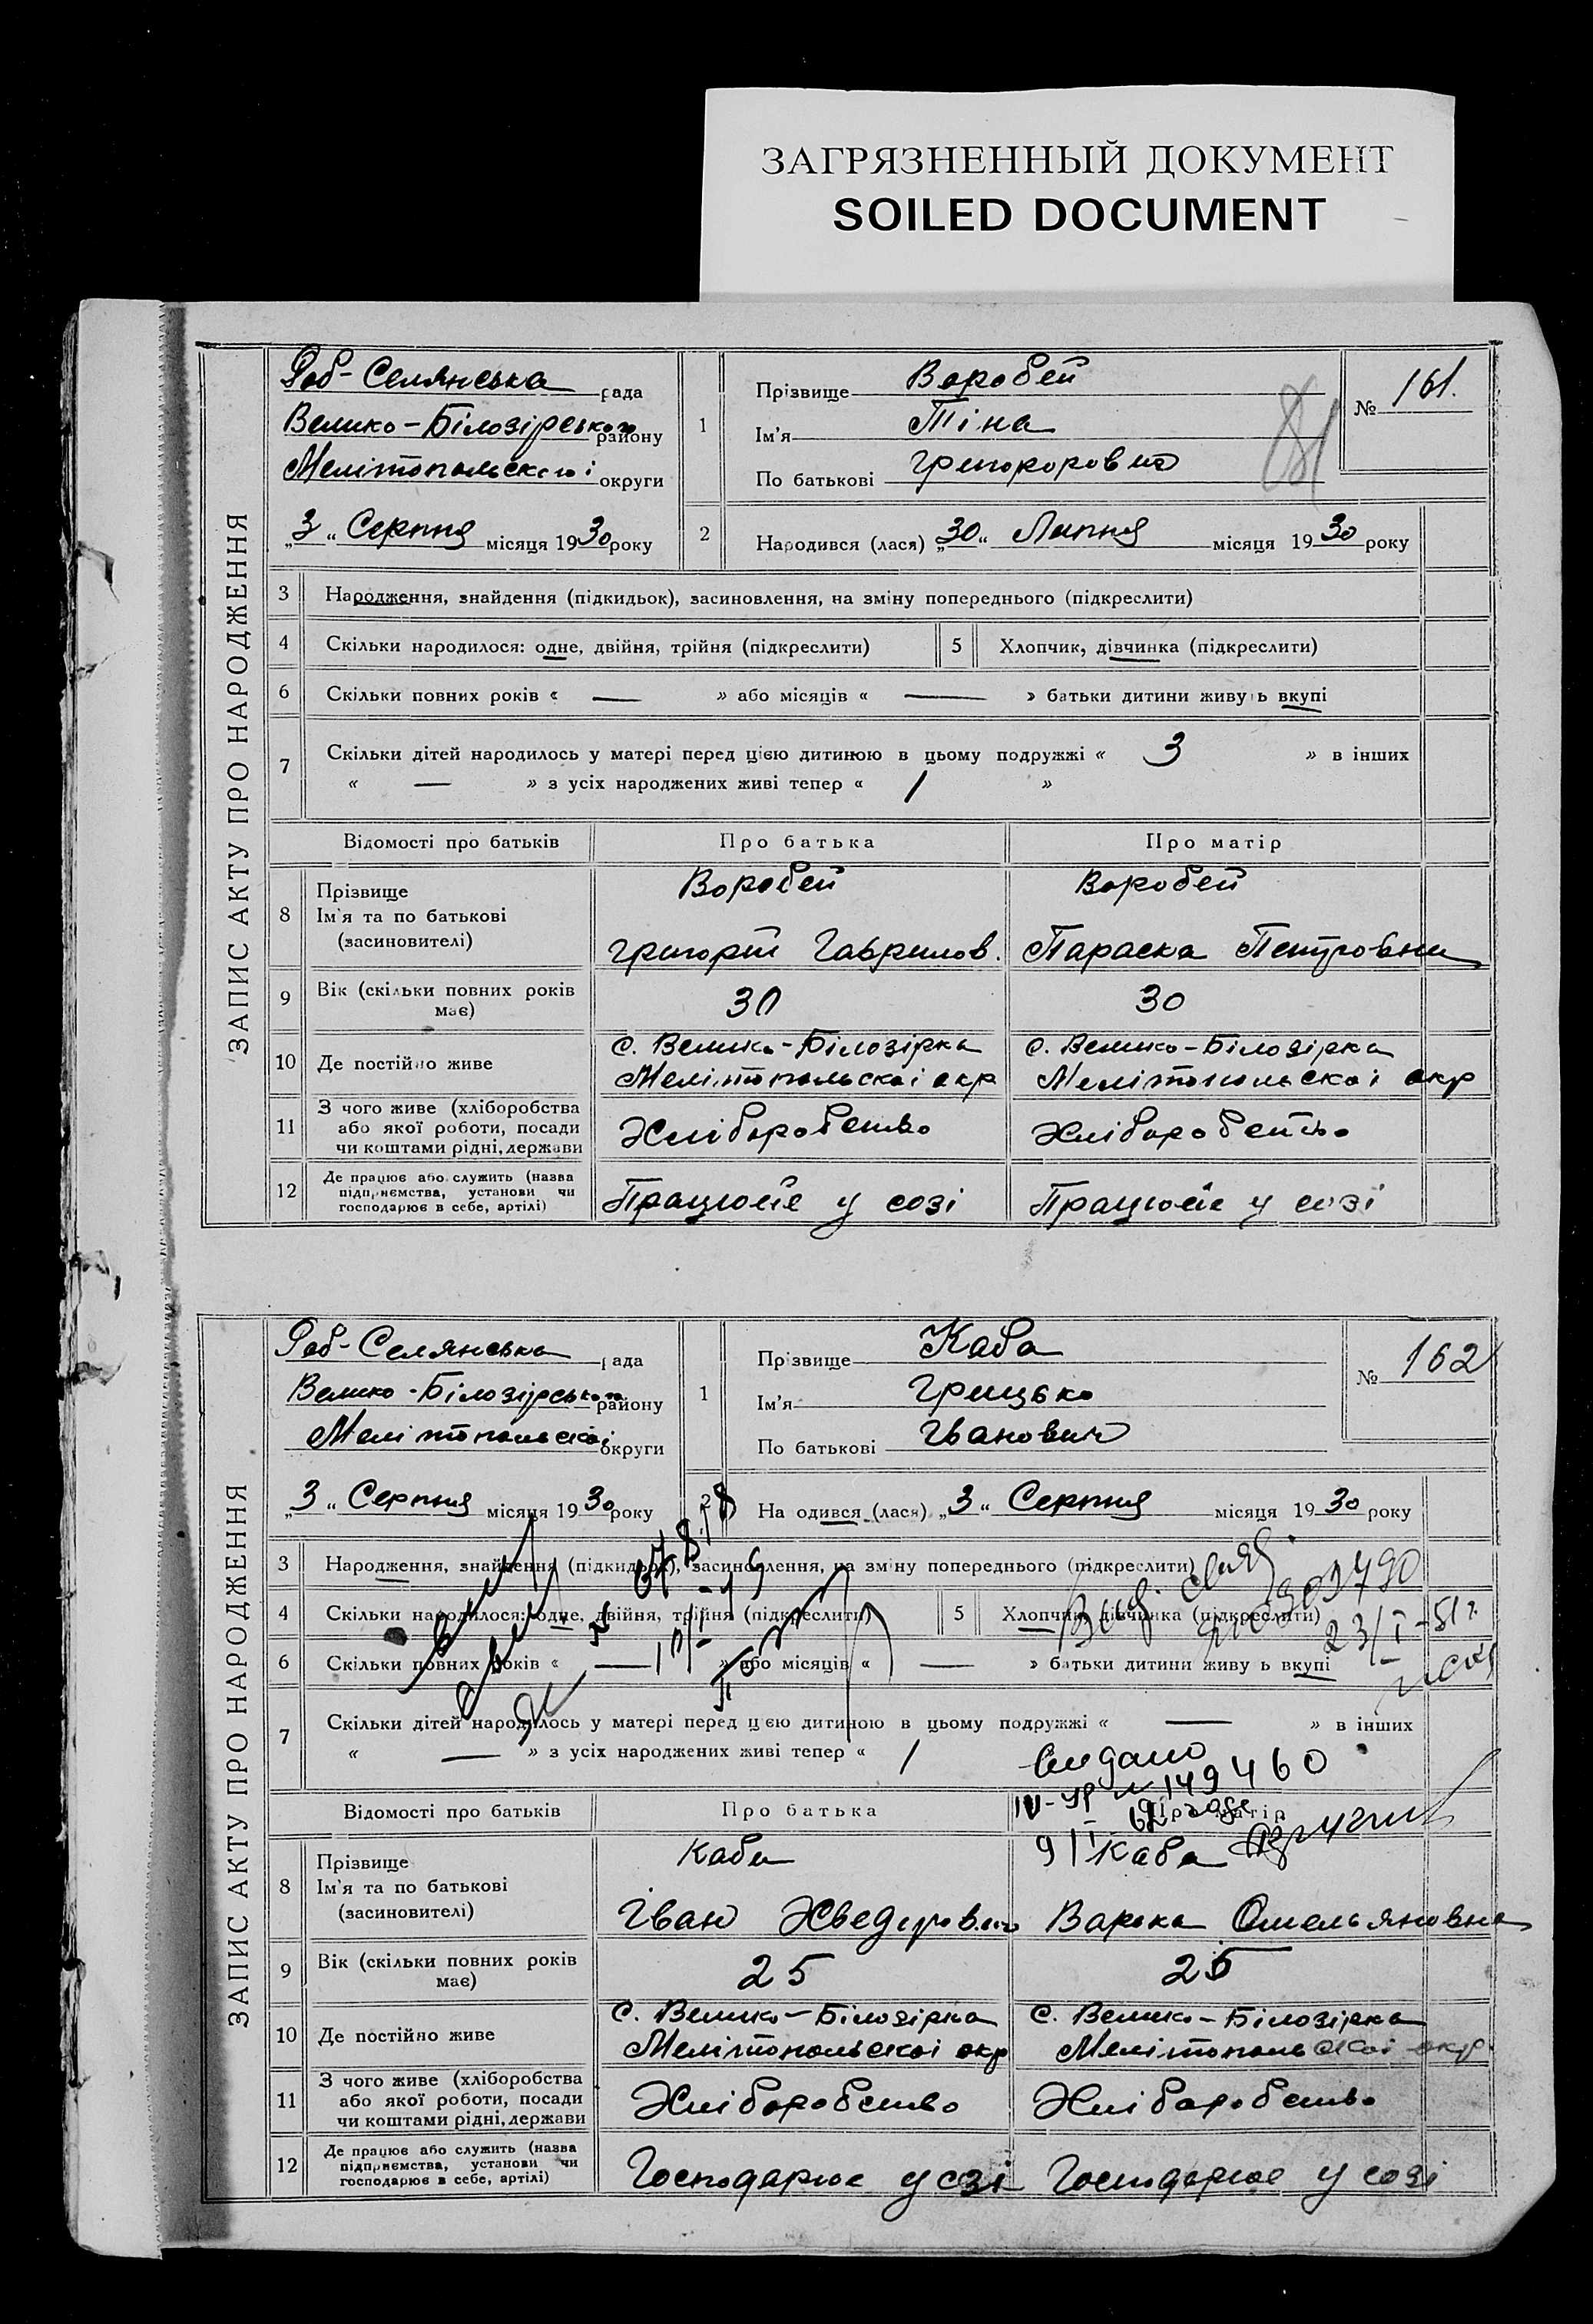 ЗАГРЯЗНЕННЫЙ ДОКУМЕНТ
SOILED DOCUMENT
ЗАПИС АКТУ ПРО НАРОДЖЕННЯ
Роб-Селянська рада
Велико-Білозірського району
Мелітопольскоі округи
„3“ Серпня місяця 1930 року
1
Прізвище Воробей
Ім'я Тіна
По батькові
№ 161.
2 Народився (лася) „30“ Липня місяця 1930 року
3 Народження, знайдення (підкидьок), засиновлення, на зміну попереднього (підкреслити)
4 Скільки народилося: одне, двійня, трійня (підкреслити) 5 Хлопчик, дівчинка (підкреслити)
6 Скільки повних років « — » або місяців « — » батьки дитини живуть вкупі
7 Скільки дітей народилось у матері перед цією дитиною в цьому подружжі « 3 » в інших
« — » з усіх народжених живі тепер « 1 »
Відомості про батьків Про батька Про матір
8 Прізвище
Ім'я та по батькові
(засиновителі)
Воробей
Григорій Гаврилов.
Воробей
Параска Петровна
9 Вік (скільки повних років має) 30 30
10 Де постійно живе
с. Велико-Білозірка
Мелітопольскоі окр
с. Велико-Білозірка
Мелітопольскоі окр
11 З чого живе (хліборобства
або якої роботи, посади
чи коштами рідні, держави
Хліборобство
Хліборобство
12 Де працює або служить (назва
підприємства, установи чи
господарює в себе, артілі)
Працюйе у созі
Працюйе у созі
ЗАПИС АКТУ ПРО НАРОДЖЕННЯ
Роб-Селянська рада
Велико-Білозірського району
Мелітопольскоі округи
„3“ Серпня місяця 1930 року
1
Прізвище Каба
Ім'я Грицько
По батькові Іванович
№ 162
2 Народився (лася) „3“ Серпня місяця 1930 року
3 Народження, знайдення (підкидьок), засиновлення, на зміну попереднього (підкреслити)
4 Скільки народилося: одне, двійня, трійня (підкреслити) 5 Хлопчик, дівчинка (підкреслити)
23/I-51г.
6 Скільки повних років « — » або місяців « — » батьки дитини живуть вкупі
7 Скільки дітей народилось у матері перед цією дитиною в цьому подружжі « — » в інших
« — » з усіх народжених живі тепер « 1
видано
149460
Відомості про батьків Про батька Про матір
8 Прізвище
Ім'я та по батькові
(засиновителі)
Каба
Іван Хведорович
Каба
Варка Омельяновна
9 Вік (скільки повних років має) 25 25
10 Де постійно живе
С. Велико-Білозірка
Мелітопольскоі окр
С. Велико-Білозірка
Мелітопольскоі окр.
11 З чого живе (хліборобства
або якої роботи, посади
чи коштами рідні, держави
Хліборобство
Хліборобство
12 Де працює або служить (назва
підприємства, установи чи
господарює в себе, артілі)
Господарює у созі
Господарює у созі